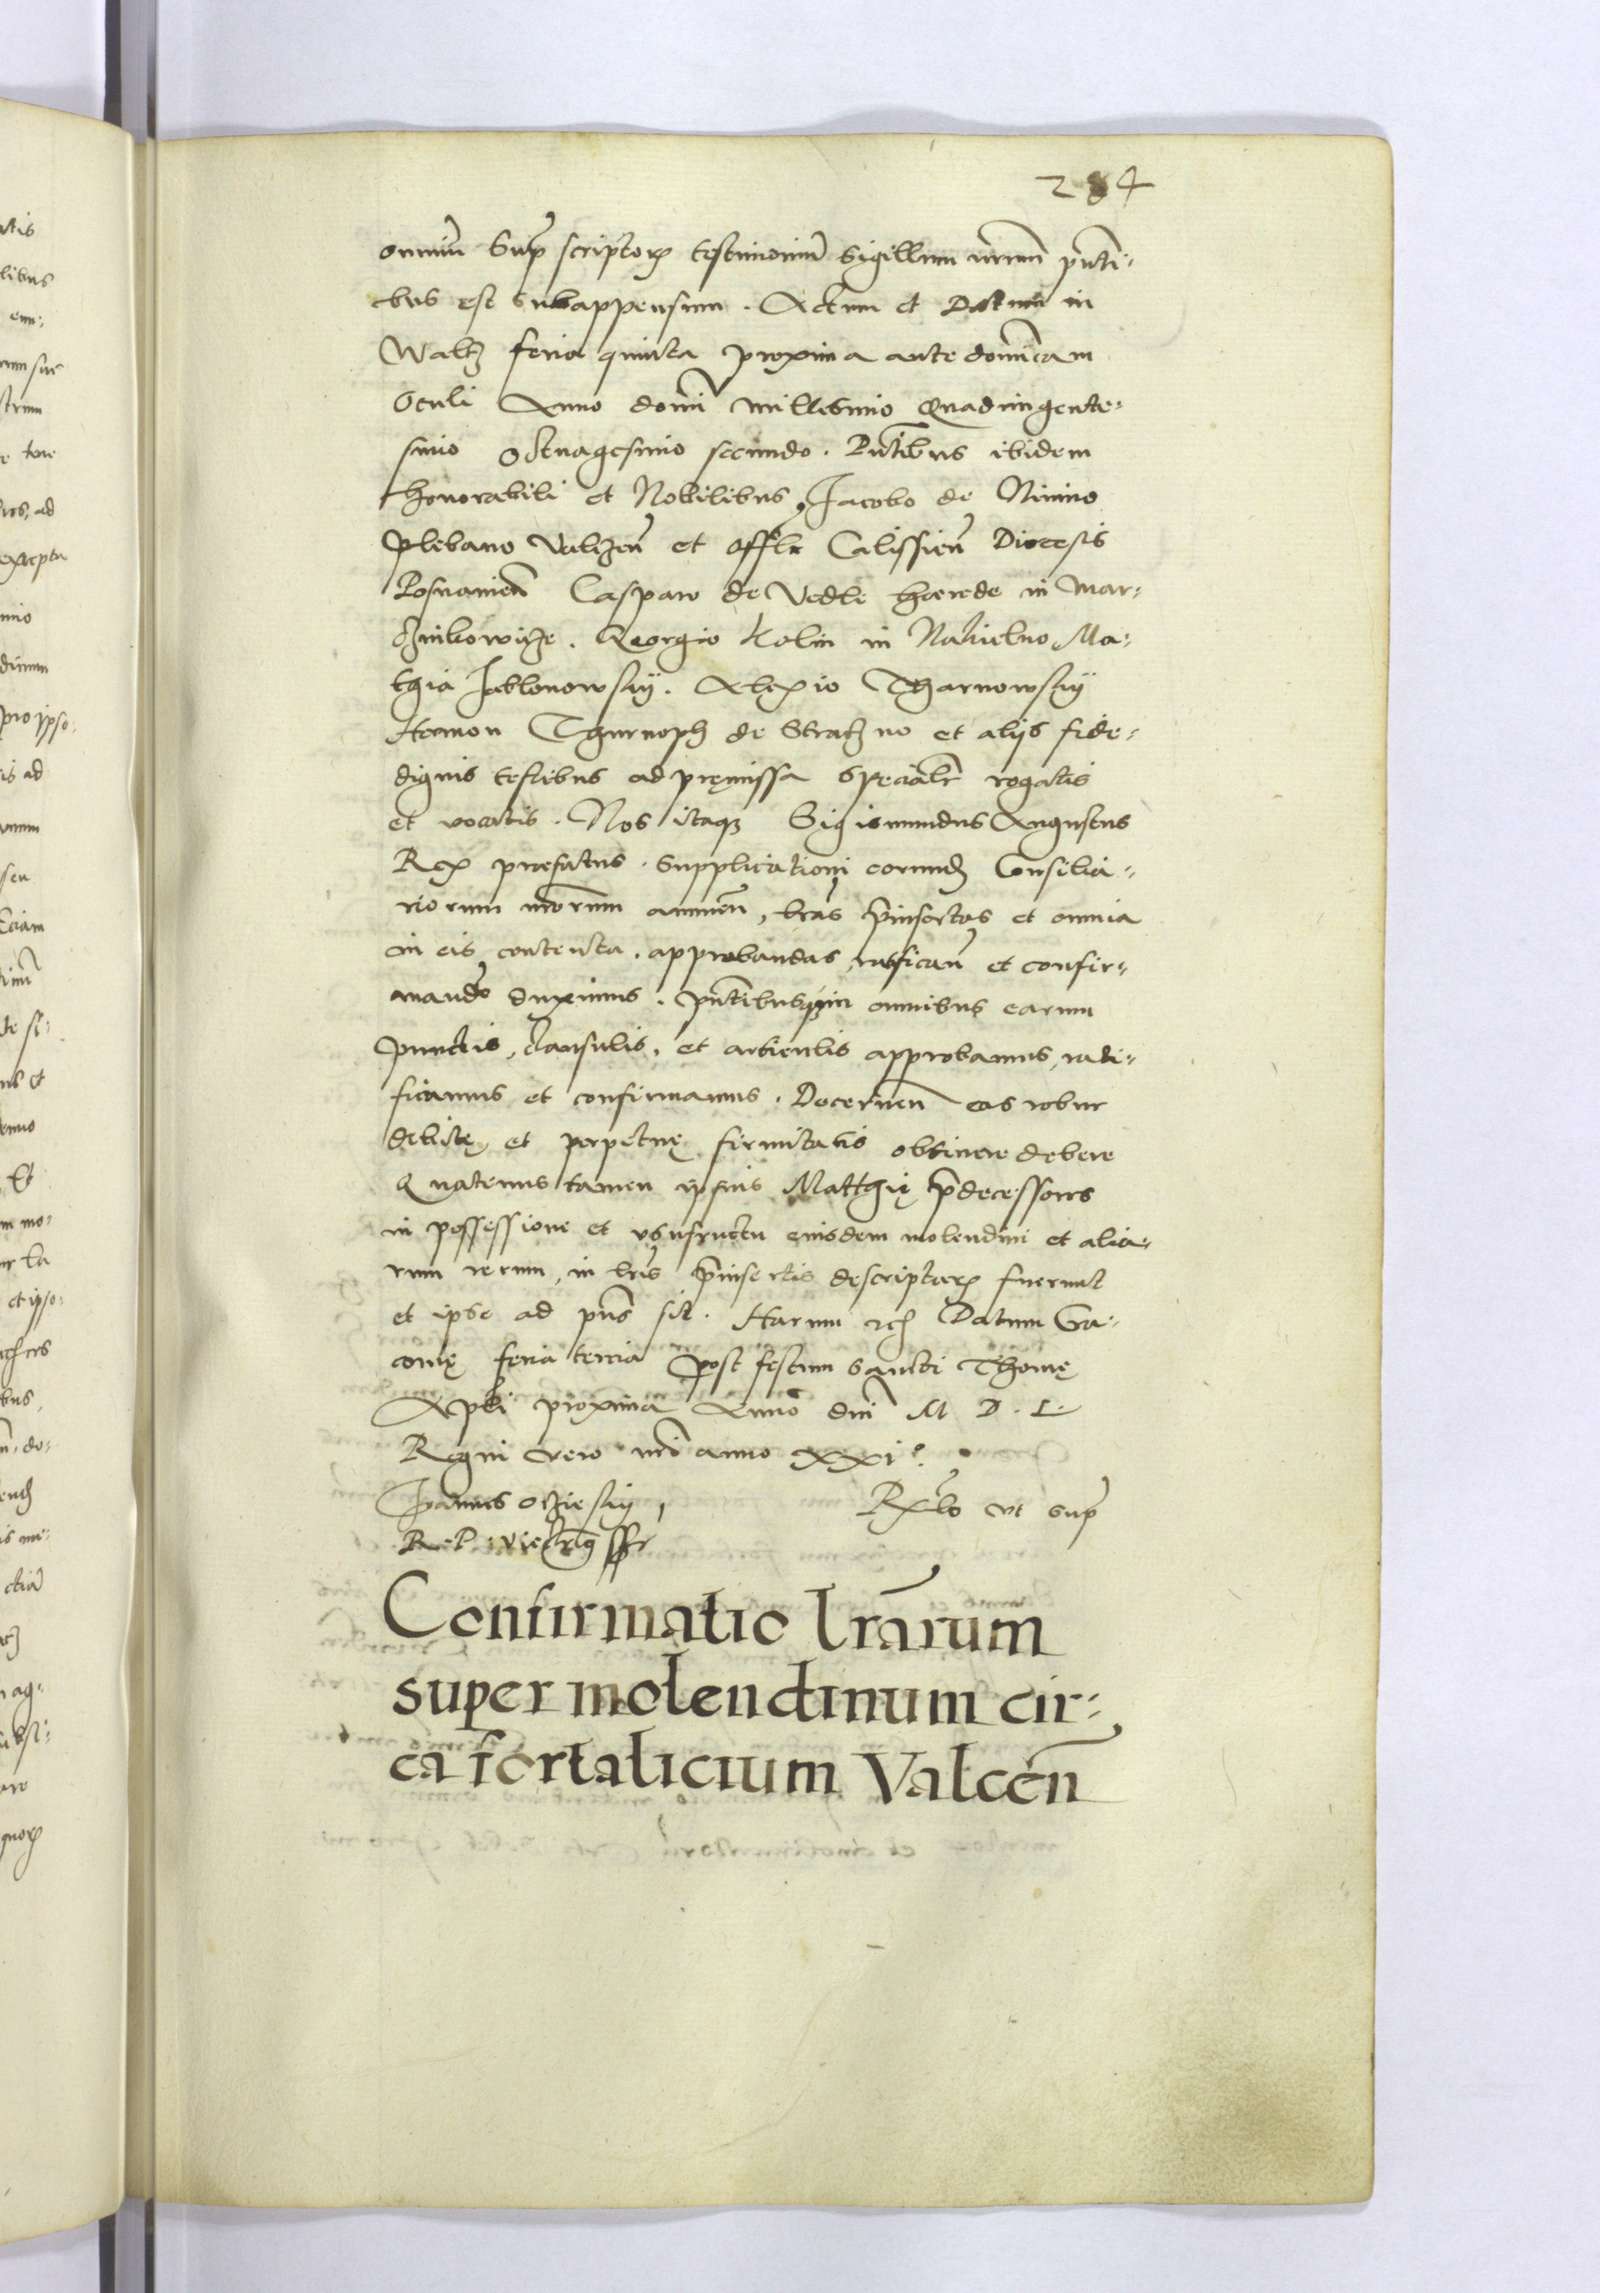 284
omniũ Sup̃ scriptorꝝ testimoniũ Sigillum nr̃um pñti-
bus est subappensum. Actum et Datum in
Waltz feria quinta proxima ante dom̃icam
Oculi Anno domi millesimo Quadringente-
simo octuagesimo secundo. Pñtibus ibidem
honorabili et Nobilibus, Jacobo de Ninino
plebano Valczeñ et offlẽ Calissieñ Diocesis
Posnanieñ Casparo de Vedle hoerede in Mar-
czinkowicze. Georgio Kolin in Nakielno Ma-
thia Jablonowskij. Alexio Tharnowskij
Hamon Thurnoph de Stratzno et alijs fide-
dignis testibus ad pręmissa specialr̃ rogatis
et vocatis. Nos itaqꝫ Sigismundus Augustus
Rex praefatus. Supplicationi eorund Consilia-
riorum nr̃orum annueñ, lr̃as p̃insertas et omnia
in eis contenta. approbandas, ratificañ et confir-
mandas duximus. pñtibusqꝫ in omnibus earum
punctis, clausulis, et articulis approbamus, rati-
ficamus et confirmamus. Decerneñ eas robur
debitę et perpetuę firmitatis obtinere debere
Quatenus tamen ipsius Matthię p̃decessores
in possessione et vsufructu eiusdem molendini et alia-
rum rerum, in lr̃is p̃insertis descriptarꝝ fuerunt
et ipse ad pñs sit. Harum etc Datum Cra-
covię feria tercia post festum sancti Thomę
Apli proxima Anno dnĩ M. D. L.
Regni vero nr̃i anno xxi°.
Joannes Oczieskij
R. P. vice
Rtio vt sup̃
Confirmatio lr̃arum
super molendinum cir-
ca fortalicium Valceñ